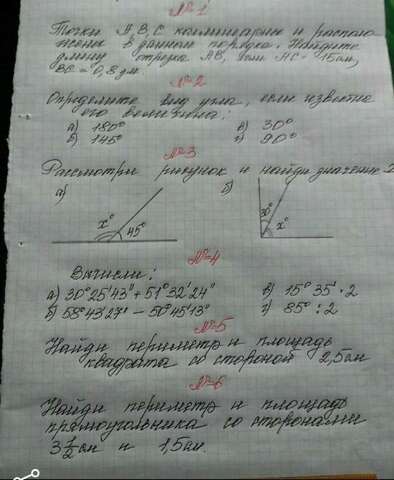 №1
Точки А, В, С коллинеарны и распола
жены в данном порядке. Найдите
длину отрезка АВ, если АС = 15см,
ВС = 0,8 дм
№2
Определите вид угла, если известна
его величина:
а) 180° в) 30°
б) 145° г) 90°
№3
Рассмотри рисунок и найди значение
а) б)
x° 45° 30° x°
№4
Вычисли:
а) 30°25'43" + 51°32'24" в) 15°35' · 2
б) 58°43'27" - 50°45'13" г) 85° : 2
№5
Найди периметр и площадь
квадрата со стороной 2,5см
№6
Найди периметр и площадь
прямоугольника со сторонами
3 1/2 см и 1,5см.